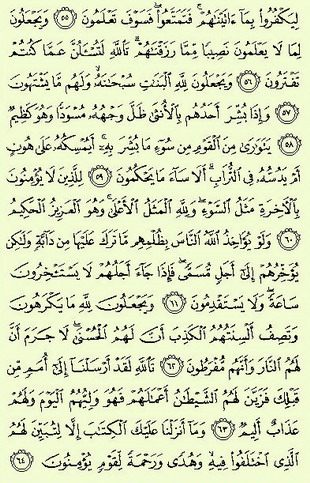 لِيَكْفُرُوا۟ بِمَآ ءَاتَيْنَٰهُمْ ۚ فَتَمَتَّعُوا۟ ۖ فَسَوْفَ تَعْلَمُونَ ﴿٥٥﴾ وَيَجْعَلُونَ
لِمَا لَا يَعْلَمُونَ نَصِيبًا مِّمَّا رَزَقْنَٰهُمْ ۗ تَٱللَّهِ لَتُسْـَٔلُنَّ عَمَّا كُنتُمْ
تَفْتَرُونَ ﴿٥٦﴾ وَيَجْعَلُونَ لِلَّهِ ٱلْبَنَٰتِ سُبْحَٰنَهُۥ ۙ وَلَهُم مَّا يَشْتَهُونَ
﴿٥٧﴾ وَإِذَا بُشِّرَ أَحَدُهُم بِٱلْأُنثَىٰ ظَلَّ وَجْهُهُۥ مُسْوَدًّا وَهُوَ كَظِيمٌ
﴿٥٨﴾ يَتَوَٰرَىٰ مِنَ ٱلْقَوْمِ مِن سُوٓءِ مَا بُشِّرَ بِهِۦٓ ۚ أَيُمْسِكُهُۥ عَلَىٰ هُونٍ
أَمْ يَدُسُّهُۥ فِى ٱلتُّرَابِ ۗ أَلَا سَآءَ مَا يَحْكُمُونَ ﴿٥٩﴾ لِلَّذِينَ لَا يُؤْمِنُونَ
بِٱلْءَاخِرَةِ مَثَلُ ٱلسَّوْءِ ۖ وَلِلَّهِ ٱلْمَثَلُ ٱلْأَعْلَىٰ ۚ وَهُوَ ٱلْعَزِيزُ ٱلْحَكِيمُ
﴿٦٠﴾ وَلَوْ يُؤَاخِذُ ٱللَّهُ ٱلنَّاسَ بِظُلْمِهِم مَّا تَرَكَ عَلَيْهَا مِن دَآبَّةٍ وَلَٰكِن
يُؤَخِّرُهُمْ إِلَىٰٓ أَجَلٍ مُّسَمًّى ۖ فَإِذَا جَآءَ أَجَلُهُمْ لَا يَسْتَـْٔخِرُونَ
سَاعَةً ۖ وَلَا يَسْتَقْدِمُونَ ﴿٦١﴾ وَيَجْعَلُونَ لِلَّهِ مَا يَكْرَهُونَ
وَتَصِفُ أَلْسِنَتُهُمُ ٱلْكَذِبَ أَنَّ لَهُمُ ٱلْحُسْنَىٰ ۖ لَا جَرَمَ أَنَّ
لَهُمُ ٱلنَّارَ وَأَنَّهُم مُّفْرَطُونَ ﴿٦٢﴾ تَٱللَّهِ لَقَدْ أَرْسَلْنَآ إِلَىٰٓ أُمَمٍ مِّن
قَبْلِكَ فَزَيَّنَ لَهُمُ ٱلشَّيْطَٰنُ أَعْمَٰلَهُمْ فَهُوَ وَلِيُّهُمُ ٱلْيَوْمَ وَلَهُمْ
عَذَابٌ أَلِيمٌ ﴿٦٣﴾ وَمَآ أَنزَلْنَا عَلَيْكَ ٱلْكِتَٰبَ إِلَّا لِتُبَيِّنَ لَهُمُ
ٱلَّذِى ٱخْتَلَفُوا۟ فِيهِ ۙ وَهُدًى وَرَحْمَةً لِّقَوْمٍ يُؤْمِنُونَ ﴿٦٤﴾